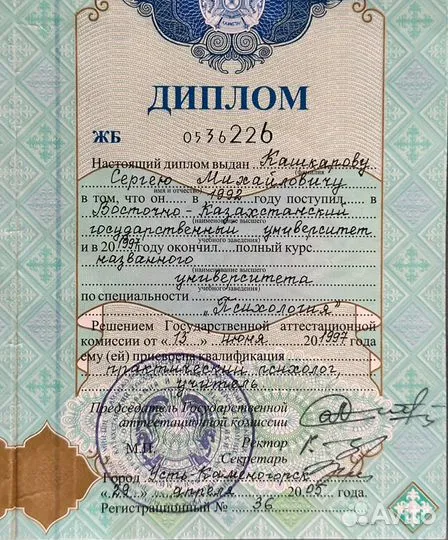 ДИПЛОМ
ЖБ 0536226
Настоящий диплом выдан Кашкарову
(фамилия
Сергею Михайловичу
имя и отчество)
в том, что он в 1992 году поступил в
Восточно-Казахстанский
государственный университет
и в 20 1997 году окончил полный курс
учебного заведения)
названного
(наименование высшего
университета
учебного заведения)
по специальности
„Психология"
Решением Государственной аттестационной
комиссии от «13» июня 20 1997 года
ему (ей) присвоена квалификация
практический психолог,
учитель
Председатель Государственной
аттестационной комиссии
Ректор
М.П. Секретарь
Город Усть-Каменогорск
«29» апреля 2005 года.
Регистрационный № 36
Avito